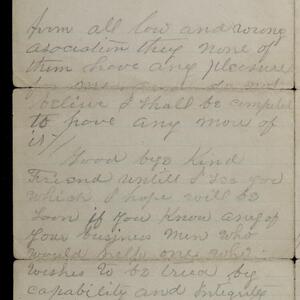 form all low and wrong
asociation they none of
them have any pleasure
for me and do not
believe I shall be compeled
to have any more of
it/
Good bye Kind
Friend untill I see you
which I hope will be
soon if you know any of
your business men who
would help one who
wishes to be tried by
capability and Integrity